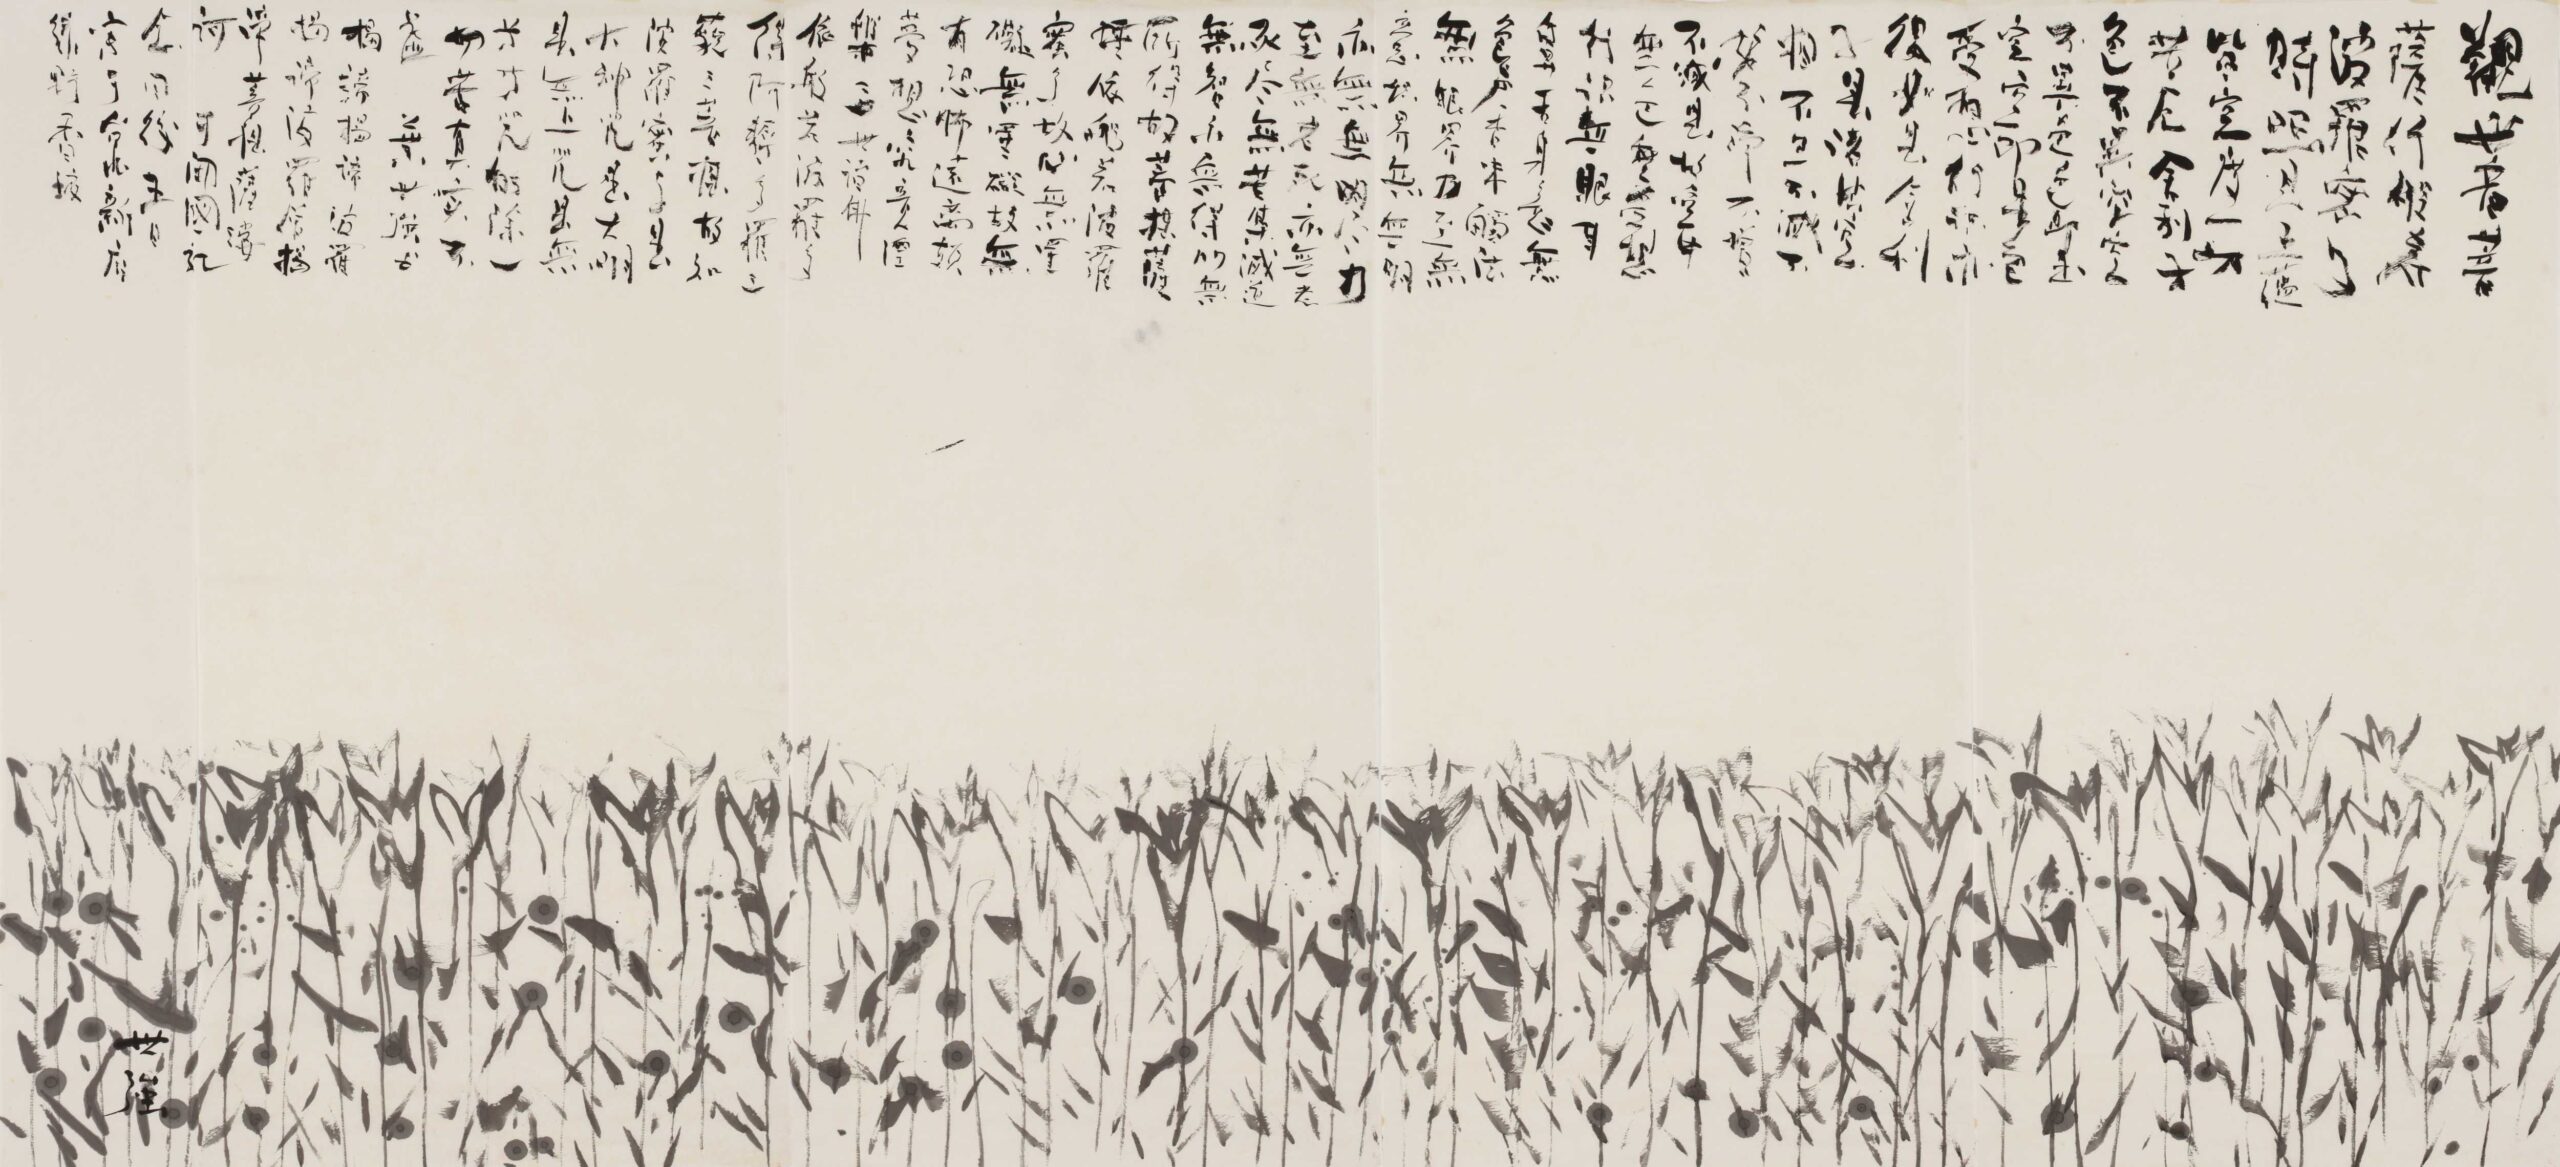 觀世音菩
薩行般若
波羅蜜多
時照見五蘊
皆空度一切
苦厄舍利子
色不異空空
不異色色即是
空空即是色
受想行識亦
復如是舍利
子是諸法空
相不生不滅不
垢不淨不增
不減是故空中
無色無受想
行識無眼耳
鼻舌身意無
色聲香味觸法
無眼界乃至無
意識界無無明
亦無無明盡乃
至無老死亦無老
死盡無苦集滅道
無智亦無得以無
所得故菩提薩
埵依般若波羅
蜜多故心無罣
礙無罣礙故無
有恐怖遠離顛
夢想究竟涅
槃三世諸佛
依般若波羅多
得阿耨多羅三
藐三菩提故知
波羅蜜多是
大神咒是大明
是無上咒是無
等等咒能除一
切苦真實不
虛
揭諦揭諦波羅
揭諦波羅僧揭
諦菩提薩婆
訶
世強